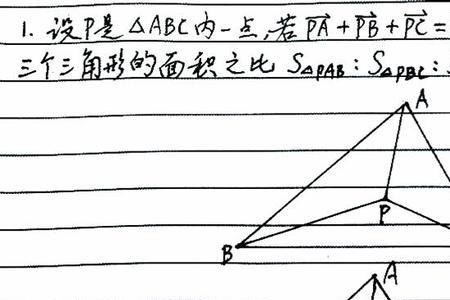 1. 设P是△ABC内一点,若PA⃗+PB⃗+PC⃗=
三个三角形的面积之比 S△PAB:S△PBC:
A
P
B
A